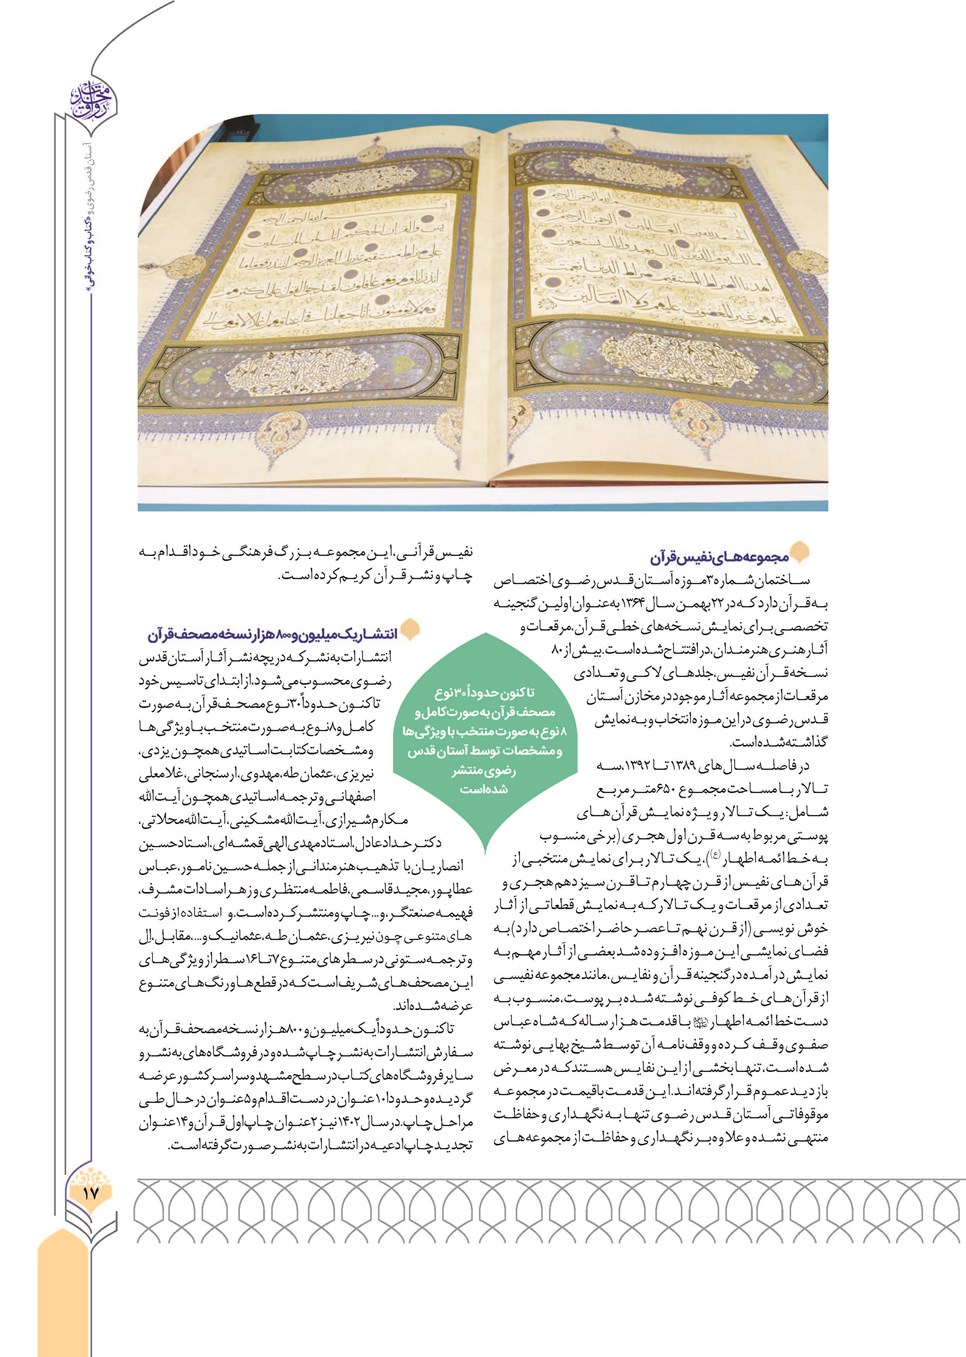 آستان قدس رضوی و «کتاب و کتاب‌خوانی»
مجموعه‌های نفیس قرآن
ساختمان شماره ۳ موزه آستان قدس رضوی اختصاص
به قرآن دارد که در ۲۲ بهمن سال ۱۳۶۴ به عنوان اولین گنجینه
تخصصی برای نمایش نسخه‌های خطی قرآن، مرقعات و
آثار هنری هنرمندان، در افتتاح شده است. بیش از ۸۰
نسخه قرآن نفیس، جلدهای لاکی و تعدادی
مرقعات از مجموعه آثار موجود در مخازن آستان
قدس رضوی در این موزه انتخاب و به نمایش
گذاشته شده است.
در فاصله سال‌های ۱۳۸۹ تا ۱۳۹۲، سه
تالار با مساحت مجموع ۶۵۰ متر مربع
شامل: یک تالار ویژه نمایش قرآن‌های
پوستی مربوط به سه قرن اول هجری (برخی منسوب
به خط ائمه اطهار (ع))، یک تالار برای نمایش منتخبی از
قرآن‌های نفیس از قرن چهارم تا قرن سیزدهم هجری و
تعدادی از مرقعات و یک تالار که به نمایش قطعاتی از آثار
خوش نویسی (از قرن نهم تا عصر حاضر اختصاص دارد) به
فضای نمایشی این موزه افزوده شد بعضی از آثار مهم به
نمایش در آمده در گنجینه قرآن و نفایس، مانند مجموعه نفیسی
از قرآن‌های خط کوفی نوشته شده بر پوست، منسوب به
دست‌خط ائمه اطهار با قدمت هزار ساله که شاه عباس
صفوی وقف کرده و وقف‌نامه آن توسط شیخ بهایی نوشته
شده است، تنها بخشی از این نفایس هستند که در معرض
بازدید عموم قرار گرفته‌اند. این قدمت باقیمت در مجموعه
موقوفاتی آستان قدس رضوی تنها به نگهداری و حفاظت
منتهی نشده و علاوه بر نگهداری و حفاظت از مجموعه‌های
نفیس قرآنی، این مجموعه بزرگ فرهنگی خود اقدام به
چاپ و نشر قرآن کریم کرده است.
انتشار یک میلیون و ۸۰۰ هزار نسخه مصحف قرآن
انتشارات به‌نشر که دریچه نشر آثار آستان قدس
رضوی محسوب می‌شود، از ابتدای تاسیس خود
تاکنون حدوداً ۳۰ نوع مصحف قرآن به صورت
کامل و ۸ نوع به صورت منتخب با ویژگی‌ها
و مشخصات کتابت اساتیدی همچون یزدی،
نیریزی، عثمان طه، مهدوی، ارسنجانی، غلامعلی
اصفهانی و ترجمه اساتیدی همچون آیت‌الله
مکارم شیرازی، آیت‌الله مشکینی، آیت‌الله محلاتی،
دکتر حداد عادل، استاد مهدی الهی قمشه‌ای، استاد حسین
انصاریان با تذهیب هنرمندانی از جمله حسین نامور، عباس
عطاپور، مجید قاسمی، فاطمه منتظری و زهرا سادات مشرف،
فهیمه صنعتگر، و... چاپ و منتشر کرده است. و استفاده از فونت
های متنوعی چون نیریزی، عثمان طه، عثمانیک و...، مقابل، ال
و ترجمه ستونی در سطرهای متنوع ۷ تا ۱۶ سطر از ویژگی‌های
این مصحف‌های شریف است که در قطع‌ها و رنگ‌های متنوع
عرضه شده‌اند.
تاکنون حدوداً یک میلیون و ۸۰۰ هزار نسخه مصحف قرآن به
سفارش انتشارات به‌نشر چاپ شده و در فروشگاه‌های به‌نشر و
سایر فروشگاه‌های کتاب در سطح مشهد و سراسر کشور عرضه
گردیده و حدودا ۱۰ عنوان در دست اقدام و ۵ عنوان در حال طی
مراحل چاپ. در سال ۱۴۰۲ نیز ۲ عنوان چاپ اول قرآن و ۱۴ عنوان
تجدید چاپ ادعیه در انتشارات به‌نشر صورت گرفته است.
تاکنون حدوداً ۳۰ نوع
مصحف قرآن به صورت کامل و
۸ نوع به صورت منتخب با ویژگی‌ها
و مشخصات توسط آستان قدس
رضوی منتشر
شده است
۱۷